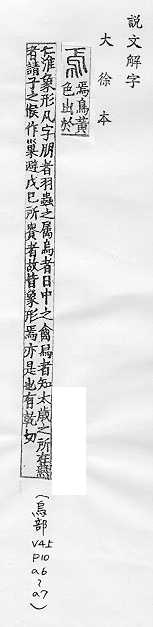 說文解字
大徐本
焉焉鳥黃
色出於
江淮象形凡字朋者羽蟲之屬烏者日中之禽舄者知太歲之所在燕
者請子之候作巢避戊己所貴者故皆象形焉亦是也有乾切
(烏部
V4上
P10
a6
~
a7)